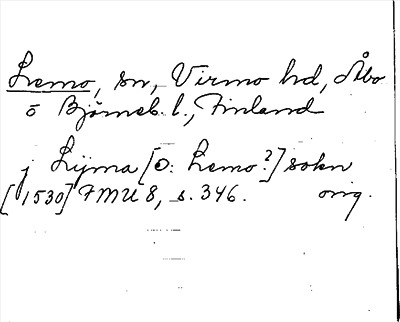 Lemo, sn, Virmo hd, Åbo
o Björneb. l., Finland
j Lijma [ɔ: Lemo?] sokn
[1530] FMU 8, s. 346. orig.